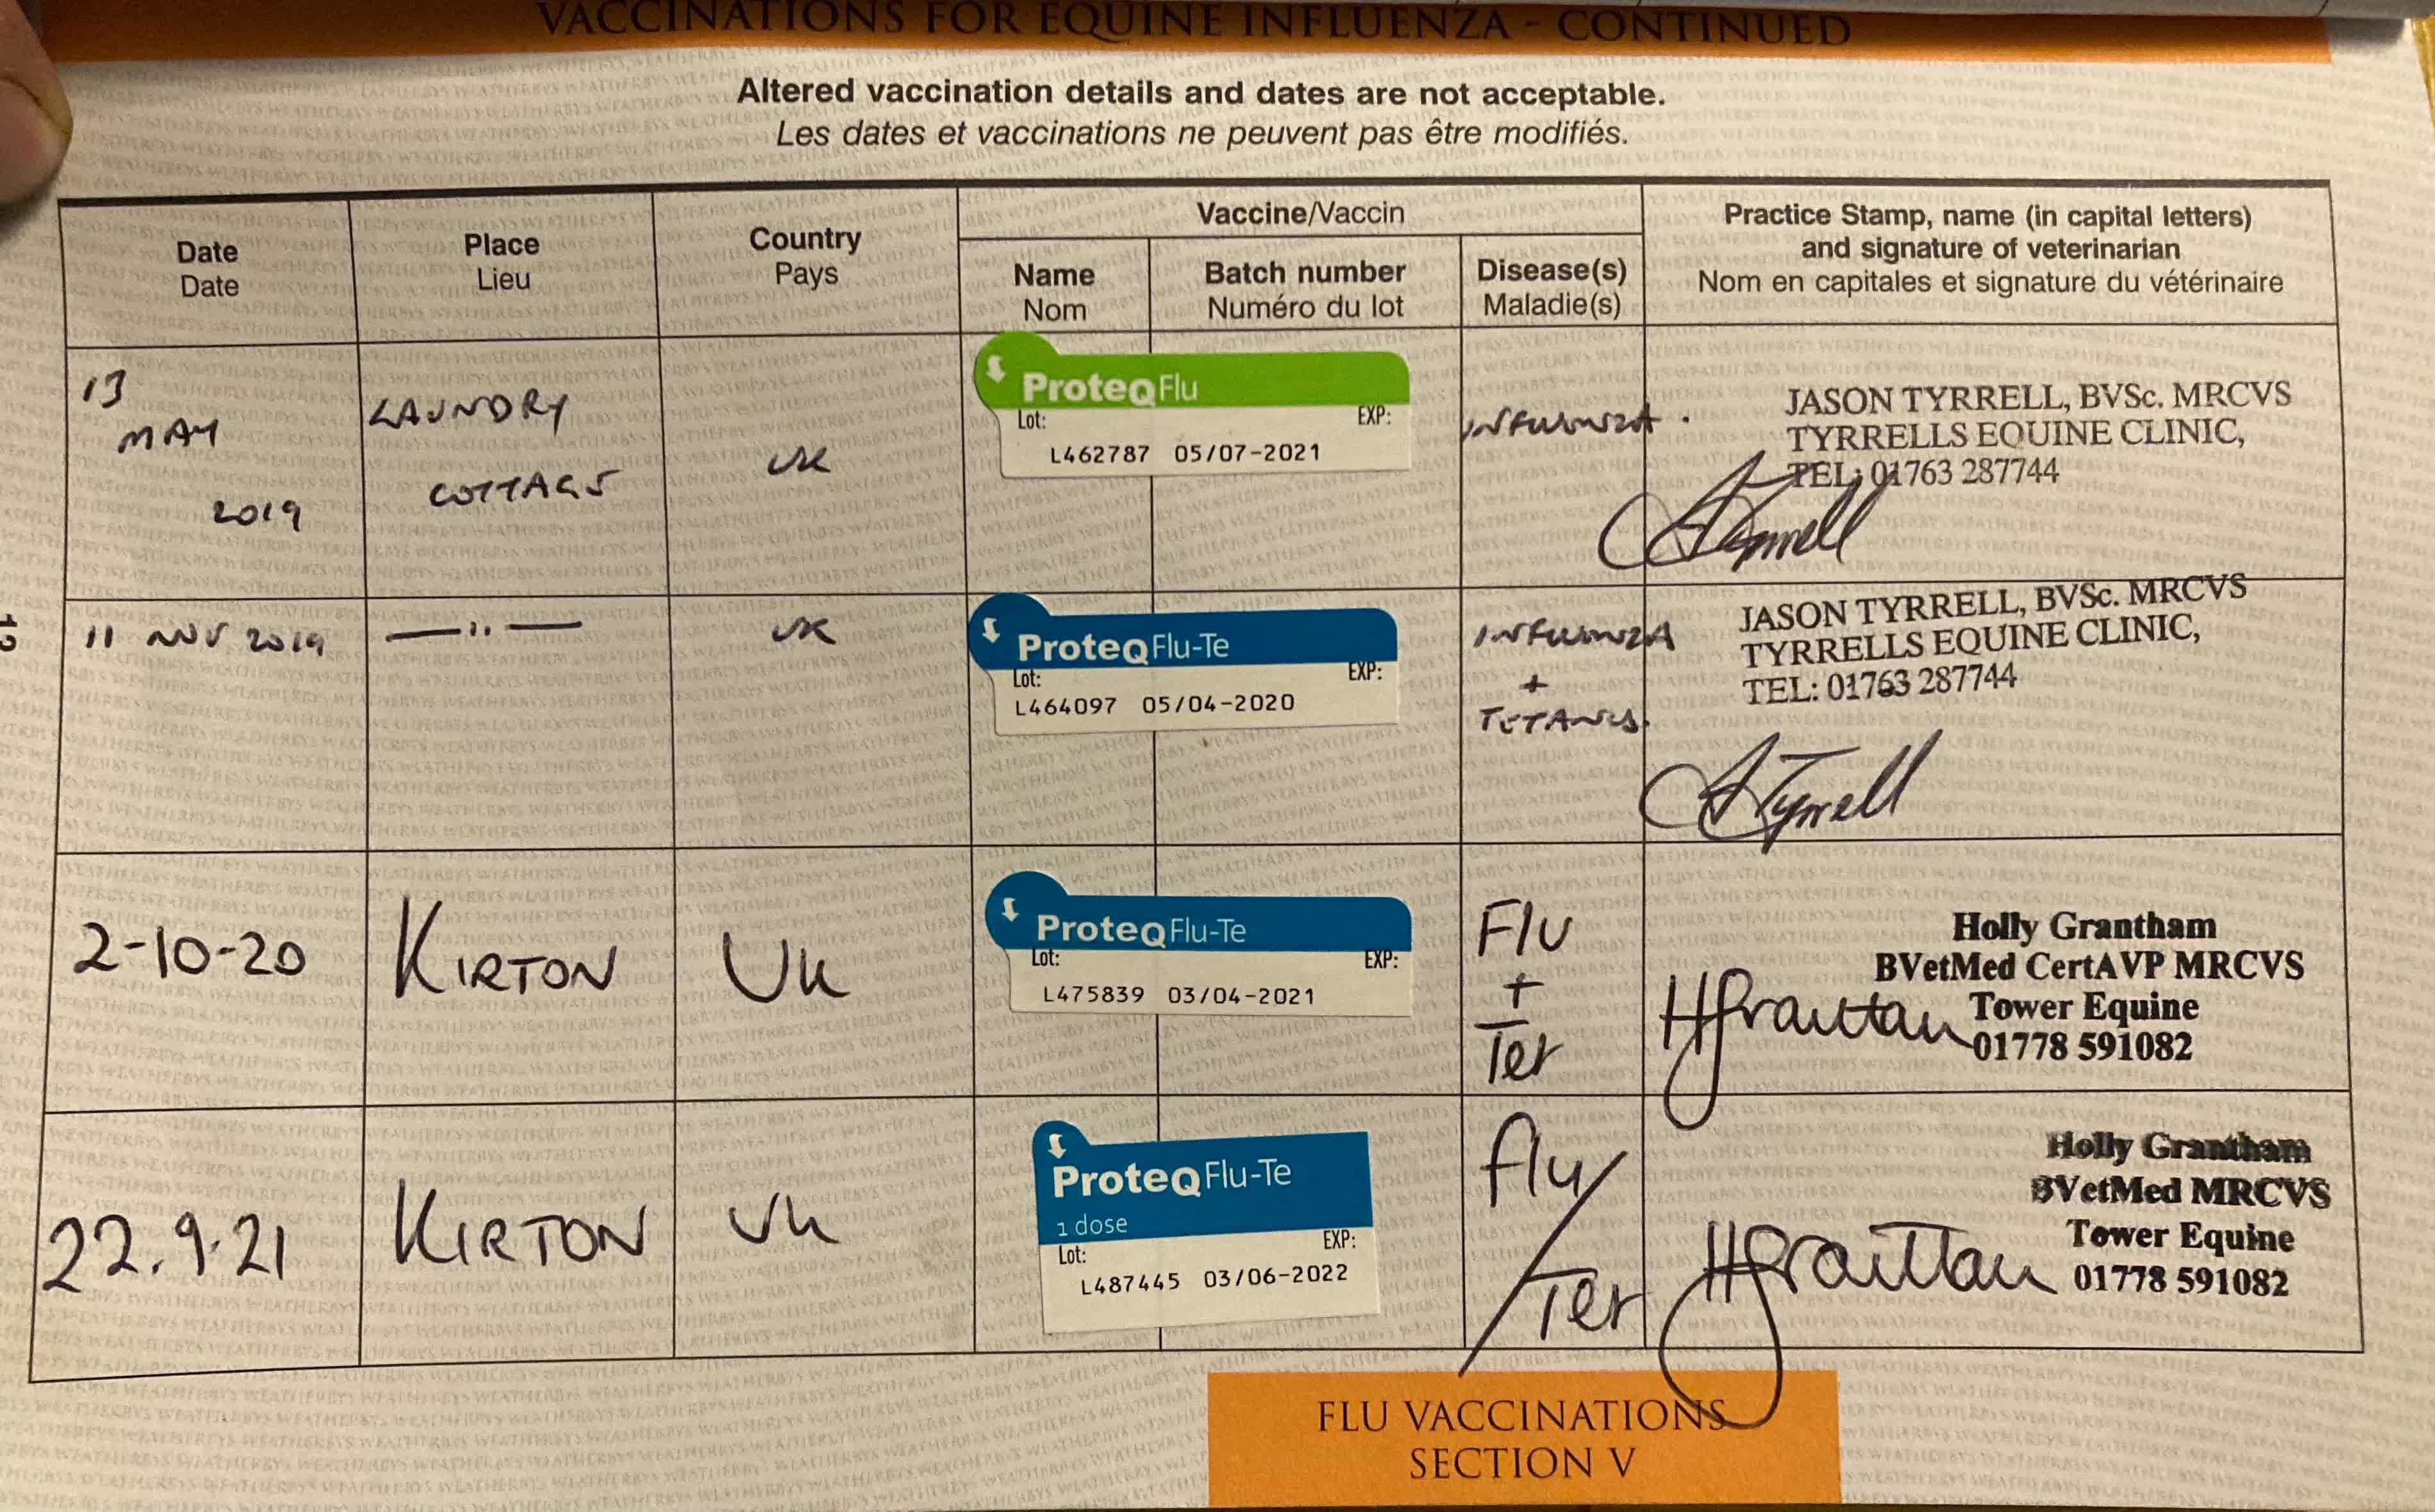 VACCINATIONS FOR EQUINE INFLUENZA - CONTINUED
Altered vaccination details and dates are not acceptable.
Les dates et vaccinations ne peuvent pas être modifiés.
Date
Date
Place
Lieu
Country
Pays
Vaccine/Vaccin
Name
Nom
Batch number
Numéro du lot
Disease(s)
Maladie(s)
Practice Stamp, name (in capital letters)
and signature of veterinarian
Nom en capitales et signature du vétérinaire
13
MAY
2019
LAUNDRY
COTTAGE
UK
ProteqFlu
Lot: EXP:
L462787 05/07-2021
INFLUENZA.
JASON TYRRELL, BVSc. MRCVS
TYRRELLS EQUINE CLINIC,
TEL: 01763 287744
11 NOV 2019
—"—
UK
ProteqFlu-Te
Lot: EXP:
L464097 05/04-2020
INFLUENZA
+
TETANUS.
JASON TYRRELL, BVSc. MRCVS
TYRRELLS EQUINE CLINIC,
TEL: 01763 287744
2-10-20
KIRTON
UK
ProteqFlu-Te
Lot: EXP:
L475839 03/04-2021
Flu
+
Tet
Holly Grantham
BVetMed CertAVP MRCVS
Tower Equine
01778 591082
22.9.21
KIRTON
UK
ProteqFlu-Te
1 dose
Lot: EXP:
L487445 03/06-2022
flu/
Tet
Holly Grantham
BVetMed MRCVS
Tower Equine
01778 591082
FLU VACCINATIONS
SECTION V